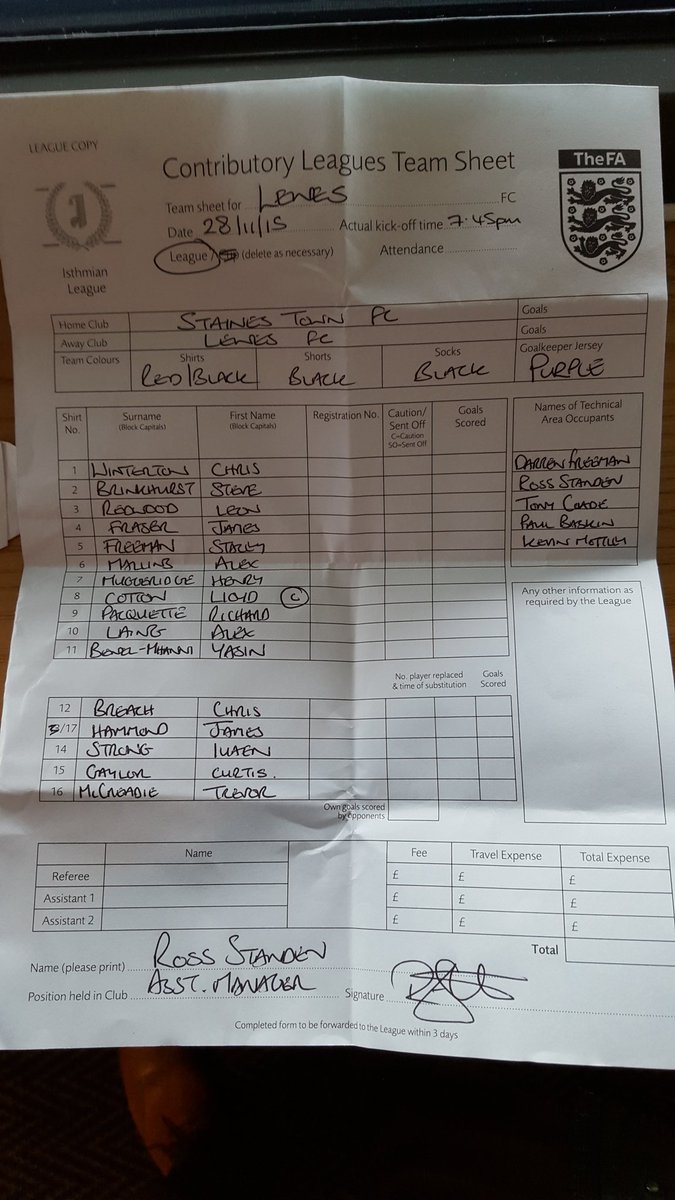 LEAGUE COPY
Contributory Leagues Team Sheet
TheFA
Team sheet for LEWES FC
Date 28/11/15 Actual kick-off time 7.45pm
League / (delete as necessary) Attendance
Isthmian
League
Home Club STAINES TOWN FC Goals
Away Club LEWES FC Goals
Team Colours Shirts Shorts Socks Goalkeeper Jersey
RED/BLACK BLACK BLACK PURPLE
Shirt No. Surname (Block Capitals) First Name (Block Capitals) Registration No. Caution/ Sent Off C=Caution SO=Sent Off Goals Scored Names of Technical Area Occupants
1 WINTERTON CHRIS DARREN FREEMAN
2 BRINKHURST STEVE ROSS STANDEN
3 REDWOOD LEON TONY COADE
4 FRASER JAMES PAUL BASKIN
5 FREEMAN STACEY KEVIN
6 MALINS ALEX
7 MUGGERIDGE HENRY
8 COTTON LLOYD C
9 PACQUETTE RICHARD
10 LAING ALEX
11 YASIN
Any other information as required by the League
No. player replaced & time of substitution Goals Scored
12 BREACH CHRIS
/17 HAMMOND JAMES
14 STRONG
15 GAYLOR CURTIS.
16 McCREADIE TREVOR
Own goals scored by opponents
Name Fee Travel Expense Total Expense
Referee £ £ £
Assistant 1 £ £ £
Assistant 2 £ £ £
Total
Name (please print) ROSS STANDEN
Position held in Club ASST. MANAGER Signature
Completed form to be forwarded to the League within 3 days